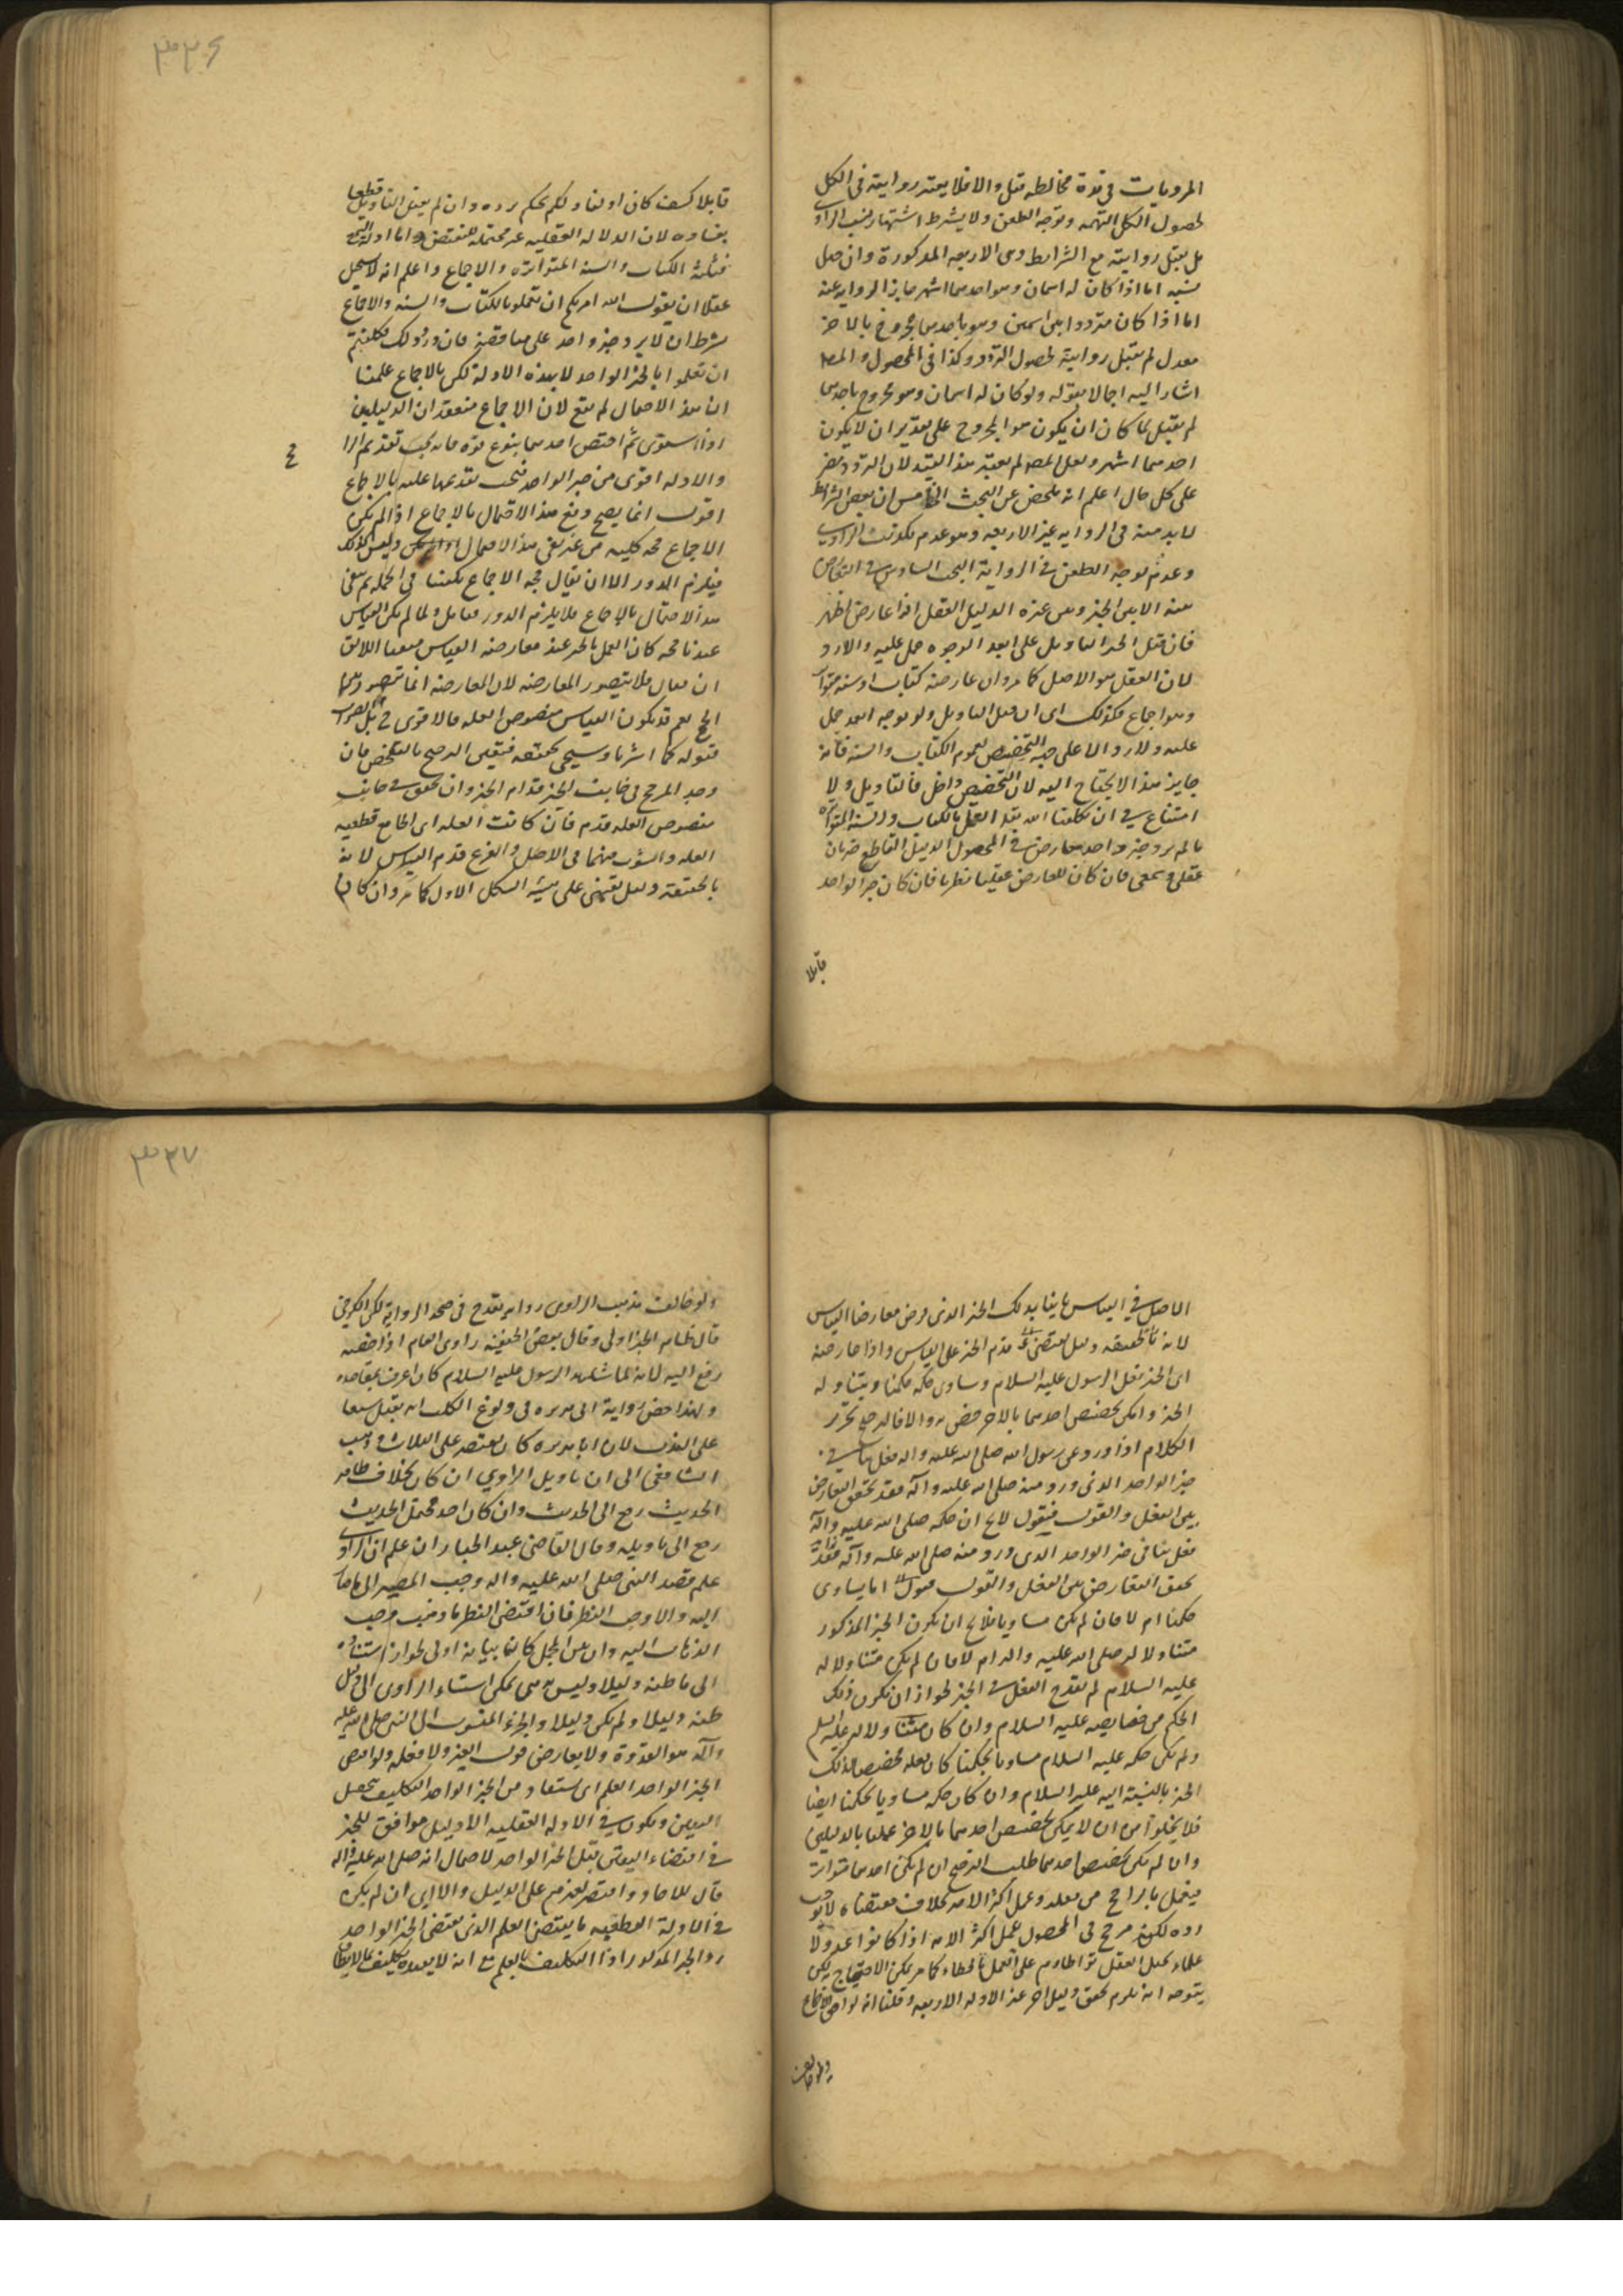 المرويات في قوة مخالطه قبل والا فلا يعتبر روايته في الكل
لحصول الكل التهمه وتوجه الطعن ولا يشرط اشتهار نسب الراوي
بل يقبل روايته مع الشرايط وهي الاربعه المذكورة وان جهل
نسبه اما اذا كان له اسمان وهو باحدهما اشهر جاز الروايه عنه
اما اذا كان مترددا بين اسمين وهو باحدهما مجروح بالاخر
معدل لم يقبل روايته لحصول التردد وكذا في المحصول والمصـ
اشار اليه اجمالا بقوله ولو كان له اسمان وهو مجروح باحدهما
لم يقبل لما كان ان يكون هو المجروح على تقدير ان لا يكون
احدهما اشهر ولعل المصـ لم يعتبر هذا القيد لان التردد مضر
على كل حال اعلم انه تلخص عن البحث الخامس ان بعض الشرائط
لابد منه في الروايه غير الاربعه وهو عدم
وعدم توجه الطعن في الرواية البحث السادس في التعارض
بينه الخبر وبين غيره الدليل العقلى اذا عارض الخبر
فان قبل الخبر التاويل على ابعد الوجوه حمل عليه والا رد
لان العقل هو الاصل كما مر وان عارضه كتاب او سنة متواترة
وهو اجماع فكذلك اى ان قبل التاويل ولو بوجه ابعد حمل
عليه ولا رد الا على جهة التخصيص لعموم الكتاب والسنه فانه
جايز هذا لا يحتاج اليه لان التخصيص داخل فى التاويل ولا
امتناع في ان تكلفنا الله بعد العمل بالكتاب والسنه المتواتره
ما لم يرد خبر واحد معارض في المحصول الدليل القاطع ضربان
عقلى وسمعى فان كان المعارض عقليا نظرنا فان كان خبر الواحد
قابلا
٣٣٦
قابلا كيف كان اولناه ولم نحكم برده وان لم يقبل التاويل قطعنا
بفساده لان الدلاله العقليه غير محتمله للنقض واما ادلة السمع
فثلثة الكتاب والسنه المتواتره والاجماع واعلم انه لا يستحيل
عقلا ان يقول الله امركم ان تعملو بالكتاب والسنه والاجماع
بشرط ان لا يرد خبر واحد على مناقضته فان ورد ذلك فكلفتم
ان تعملوا بالخبر الواحد لا بهذه الادلة لكن بالاجماع علمنا
ان هذا الاحتمال لم يقع لان الاجماع منعقد ان الدليلين
اذا استوى ثم اختص احدهما بنوع قوه فانه يجب تقديم الرا
ج
والادله اقوى من خبر الواحد فيجب تقديمها عليه بالاجماع
اقول انما يصح دفع هذا الاحتمال بالاجماع اذا لم يكن
الاجماع حجه كليه من غير نفى هذا الاحتمال وليس كذلك
فيلزم الدور الا ان يقال حجه الاجماع يكفينا في الجمله ثم نفى
هذا الاحتمال بالاجماع فلا يلزم الدور فتامل ولما لم يكن القياس
عندنا حجه كان العمل بالخبر عند معارضه القياس متعينا اللائق
ان يقال فلا يتصور المعارضه لان المعارضه انما تتصور بينهما
الخ نعم قد يكون القياس منصوص العله فالاقوى
قبوله كما اشرنا وسيجى تحقيقه فيقبل الترجيح بالتلخص فان
وجد المرجح في جانب الخبر قدم الخبر وان تحقق في جانب
منصوص العله قدم فان كانت العله اى الجامع قطعيه
العله والثبوت منهما في الاصل والفرع قدم القياس لانه
بالحقيقة دليل يقينى على هيئة الشكل الاول كما مر وان كان
الاصل في القياس ثابتا بذلك الخبر الذى فرض معارضا القياس
لانه بالحقيقه دليل يقتضى قدم الخبر على القياس واذا عارضه
اى الخبر فعل الرسول عليه السلام وساوى حكمه حكمنا ويتناوله
الخبر وامكن تخصيص احدهما بالاخر خص به والا فالترجيح تحرير
الكلام اذا ورد عن رسول الله صلى الله عليه واله فعل ينافي
خبر الواحد الذى ورد منه صلى الله عليه وآله فقد تحقق التعارض
بين الفعل والقول فيقول لا يخ ان حكمه صلى الله عليه وآله
فعل ينافى خبر الواحد الذى ورد منه صلى الله عليه وآله فقد
تحقق التعارض بين الفعل والقول فنقول اما يساوى
حكمنا ام لا فان لم يكن مساويا فلا يخ ان يكون الخبر المذكور
متناولا له صلى الله عليه واله ام لا فان لم يكن متناولا له
عليه السلام لم يقدح الفعل في الخبر لجواز ان يكون ذلك
الحكم من خصايصه عليه السلام وان كان متناولا له عليه السلم
ولم يكن حكمه عليه السلام مساويا لحكمنا كان فعله تخصيصا لذلك
الخبر بالنسبة اليه عليه السلام وان كان حكمه مساويا لحكمنا ايضا
فلا يخلو من ان لا يمكن تخصيص احدهما بالاخر عملنا بالدليلين
وان لم يكن تخصيص احدهما طلب الترجيح ان لم يكن احدهما متواترا
فيعمل بالراجح من فعله وعمل اكثر الامه بخلاف مقتضاه لا يوجب
رده لكونه مرجح في المحصول عمل اكثر الامه اذا كانوا عدولا
علماء يحيل العقل تواطاؤهم على العمل بالخطاء كما مر يمكن الاحتجاج لكن
يتوجه انه يلزم تحقق دليل اخر غير الادله الاربعه وقلنا انه لو
ولو خالف
٣٣٧
ولو خالف مذهب الراوى روايه يقدح في صحه الروايه لكن الكرخى
قال ظاهر الخبر اولى وقال بعض الحنفيه راوى العام اذا خصصه
رجع اليه لانه لما شاهد الرسول عليه السلام كان اعرف بمقاصده
ولهذا خص رواية ابى هريره في ولوغ الكلب انه يغسل سبعا
على الندب لان ابا هريره كان يقتصر على الثلاث وذهب
الشافعى الى ان تاويل الراوي ان كان بخلاف ظاهر
الحديث رجع الى الحديث وان كان احد محتمل الحديث
رجع الى تاويله وقال القاضى عبد الجبار ان علم ان الراوى
علم قصد النبى صلى الله عليه واله وجب المصير الى ما صار
اليه والا وجب النظر فان اقتضى النظر ما ذهب وجب
الذهاب اليه وان بين المجمل كان بيانه اولى لجواز استناده
الى ما ظنه دليلا وليس هو يمكن استناد الراوى الى دليل
ظنه دليلا ولم يكن دليلا والخبر المنسوب الى النبى صلى الله عليه
وآله هو القدوة ولا يعارض قول الغير ولا فعله ولو اقتضى
الخبر الواحد العلم اى يستفاد من الخبر الواحد التكليف تحصيل
اليقين ويكون في الادله العقليه الا دليل موافق للخبر
في اقتضاء اليقين قبل الخبر الواحد لاحتمال انه صلى الله عليه واله
قال للاحاد واقتصر لغيرهم على الدليل والا اى ان لم يكن
في الادلة القطعيه ما يقتضى العلم الذى يقتضى الخبر الواحد
رد الخبر المذكور اذ التكليف بالعلم مع انه لا يفيده تكليف بما لا يطاق